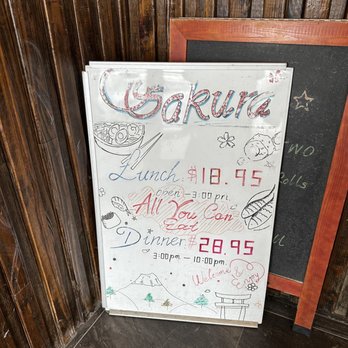 Sakura
Lunch: $18.95
open - 3:00 pm
All You Can
Eat
Dinner: $28.95
3:00pm - 10:00pm.
Welcome
Enjoy
TWO
Rolls